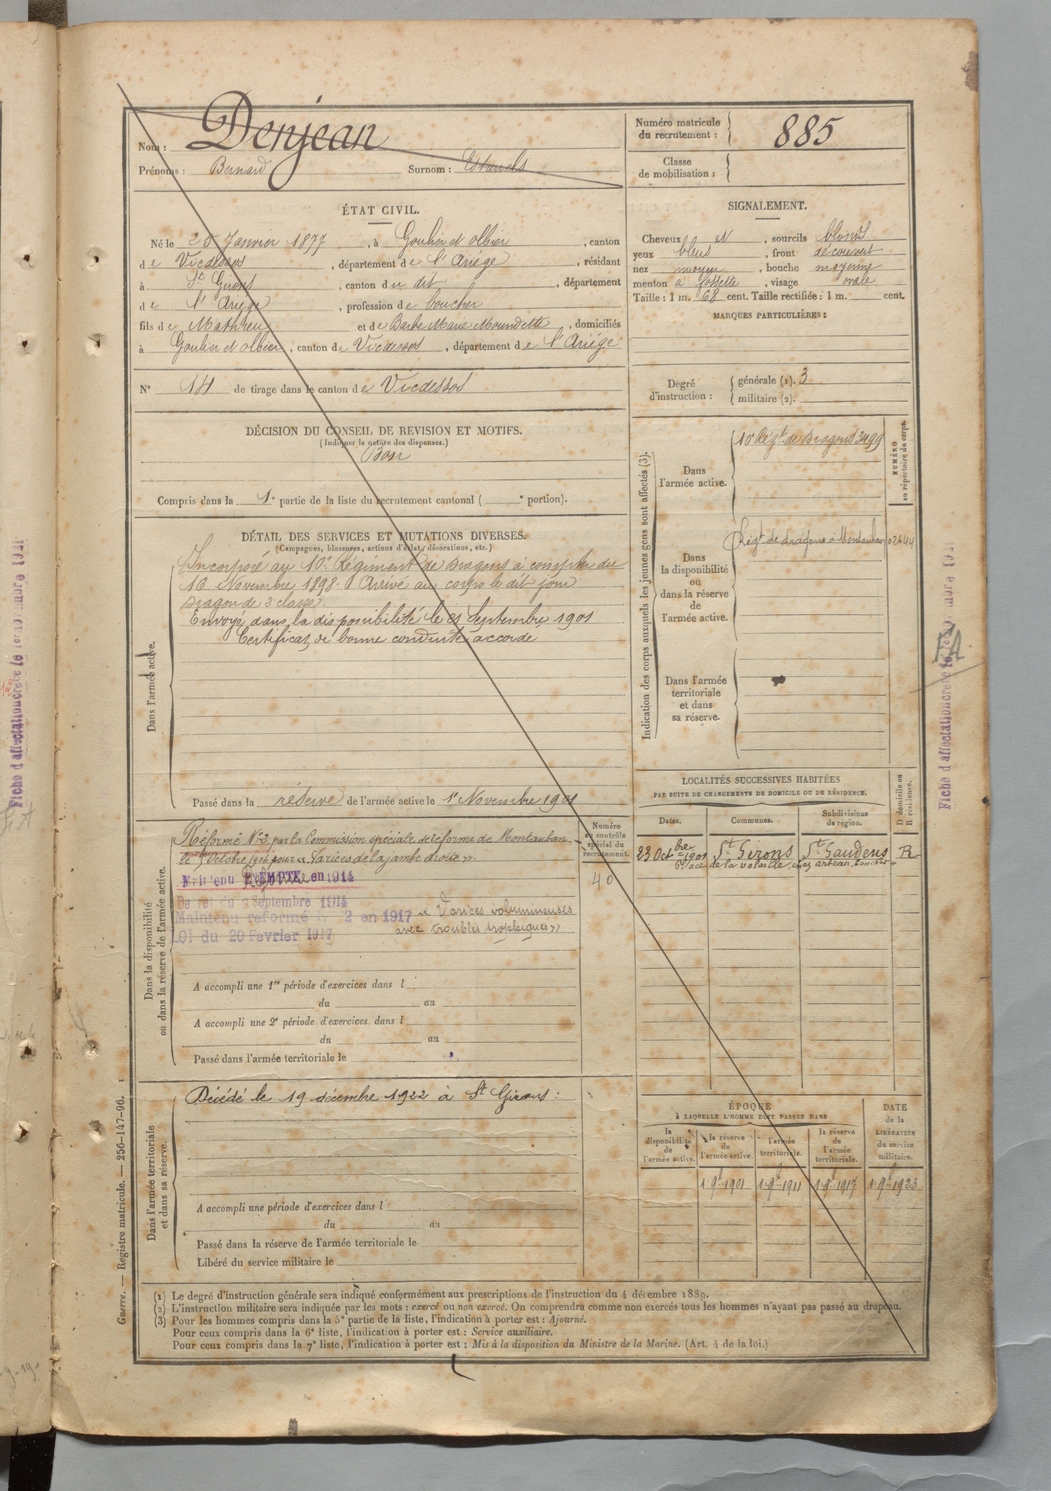 Nom : Denjean
Prénoms : Bernard Surnom :
Numéro matricule du recrutement : 885
Classe de mobilisation :
ÉTAT CIVIL.
Né le 25 Janvier 1877, à Goulier et Olbier, canton
de Vicdessos, département de l'Ariège, résidant
à St Girons, canton du dit, département
de l'Ariège, profession de boucher
fils de Mathieu et de Barbe Marie Moundette, domiciliés
à Goulier et Olbier, canton de Vicdessos, département de l'Ariège
N° 14 de tirage dans le canton de Vicdessos
SIGNALEMENT.
Cheveux et, sourcils blonds
yeux bleus, front découvert
nez moyen, bouche moyenne
menton à fossette, visage ovale
Taille : 1 m. 68 cent. Taille rectifiée : 1 m. cent.
MARQUES PARTICULIÈRES :
Degré d'instruction : générale (1). 3
militaire (2).
DÉCISION DU CONSEIL DE REVISION ET MOTIFS.
(Indiquer la nature des dispenses.)
Bon
Compris dans la 1e partie de la liste du recrutement cantonal ( e portion).
DÉTAIL DES SERVICES ET MUTATIONS DIVERSES.
(Campagnes, blessures, actions d'éclat, décorations, etc.)
Dans l'armée active.
Incorporé au 10e Régiment de Dragons à compter du
16 Novembre 1898. Arrivé au corps le dit jour
Dragon de 2e classe
Envoyé dans la disponibilité le 21 Septembre 1901
Certificat de bonne conduite accordé
Passé dans la réserve de l'armée active le 1er Novembre 1901
Indication des corps auxquels les jeunes gens sont affectés (3).
NUMÉRO au répertoire du corps.
Dans l'armée active.
10e Régt de Dragons 3499
Dans la disponibilité ou dans la réserve de l'armée active.
Régt de dragons à Montauban 02644
Dans l'armée territoriale et dans sa réserve.
LOCALITÉS SUCCESSIVES HABITÉES
PAR SUITE DE CHANGEMENTS DE DOMICILE OU DE RÉSIDENCE.
Dates. Communes. Subdivisions de région. D domicile ou R résidence.
23 Octbre 1901 St Girons St Gaudens R
Dans la disponibilité ou dans la réserve de l'armée active.
Numéro au contrôle spécial du recrutement.
40
Réformé N°2 par la Commission spéciale de réforme de Montauban
le Octobre pour « Varices de la jambe droite ».
Maintenu EXEMPTÉ en 1914
Décret du 9 Septembre 1914
Maintenu réformé N° 2 en 1917 « Varices volumineuses
Loi du 20 Février 1917 avec troubles trophiques »
A accompli une 1re période d'exercices dans l
du au
A accompli une 2e période d'exercices dans l
du au
Passé dans l'armée territoriale le
Dans l'armée territoriale et dans sa réserve.
Décédé le 19 décembre 1922 à St Girons :
A accompli une période d'exercices dans l
du au
Passé dans la réserve de l'armée territoriale le
Libéré du service militaire le
ÉPOQUE
À LAQUELLE L'HOMME DOIT PASSER DANS
la disponibilité de l'armée active. la réserve de l'armée active. l'armée territoriale. la réserve de l'armée territoriale.
DATE de la LIBÉRATION du service militaire.
1 9bre 1901 1 9bre 1911 1 9bre 1917 1 9bre 1923
(1) Le degré d'instruction générale sera indiqué conformément aux prescriptions de l'instruction du 4 décembre 1889.
(2) L'instruction militaire sera indiquée par les mots : exercé ou non exercé. On comprendra comme non exercés tous les hommes n'ayant pas passé au drapeau.
(3) Pour les hommes compris dans la 5e partie de la liste, l'indication à porter est : Ajourné.
Pour ceux compris dans la 6e liste, l'indication à porter est : Service auxiliaire.
Pour ceux compris dans la 7e liste, l'indication à porter est : Mis à la disposition du Ministre de la Marine. (Art. 4 de la loi.)
Guerre. — Registre matricule. — 256-147-96.
Fiche d'affectation créée le
FA